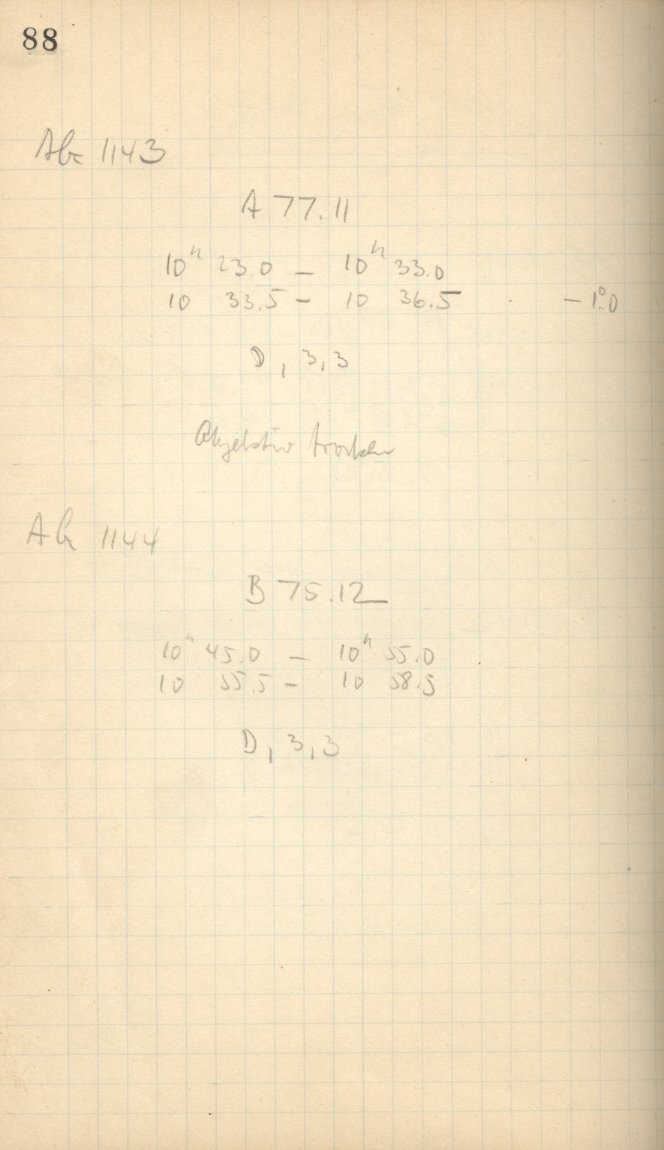 88
Abc 1143
A 77.11
10ʰ 23.0 – 10ʰ 33.0
10 33.5 – 10 36.5 – 1°.0
D, 3, 3
Objektiv trocken
1144
B 75.12
10ʰ 45.0 – 10ʰ 55.0
10 55.5 – 10 58.5
D, 3, 3